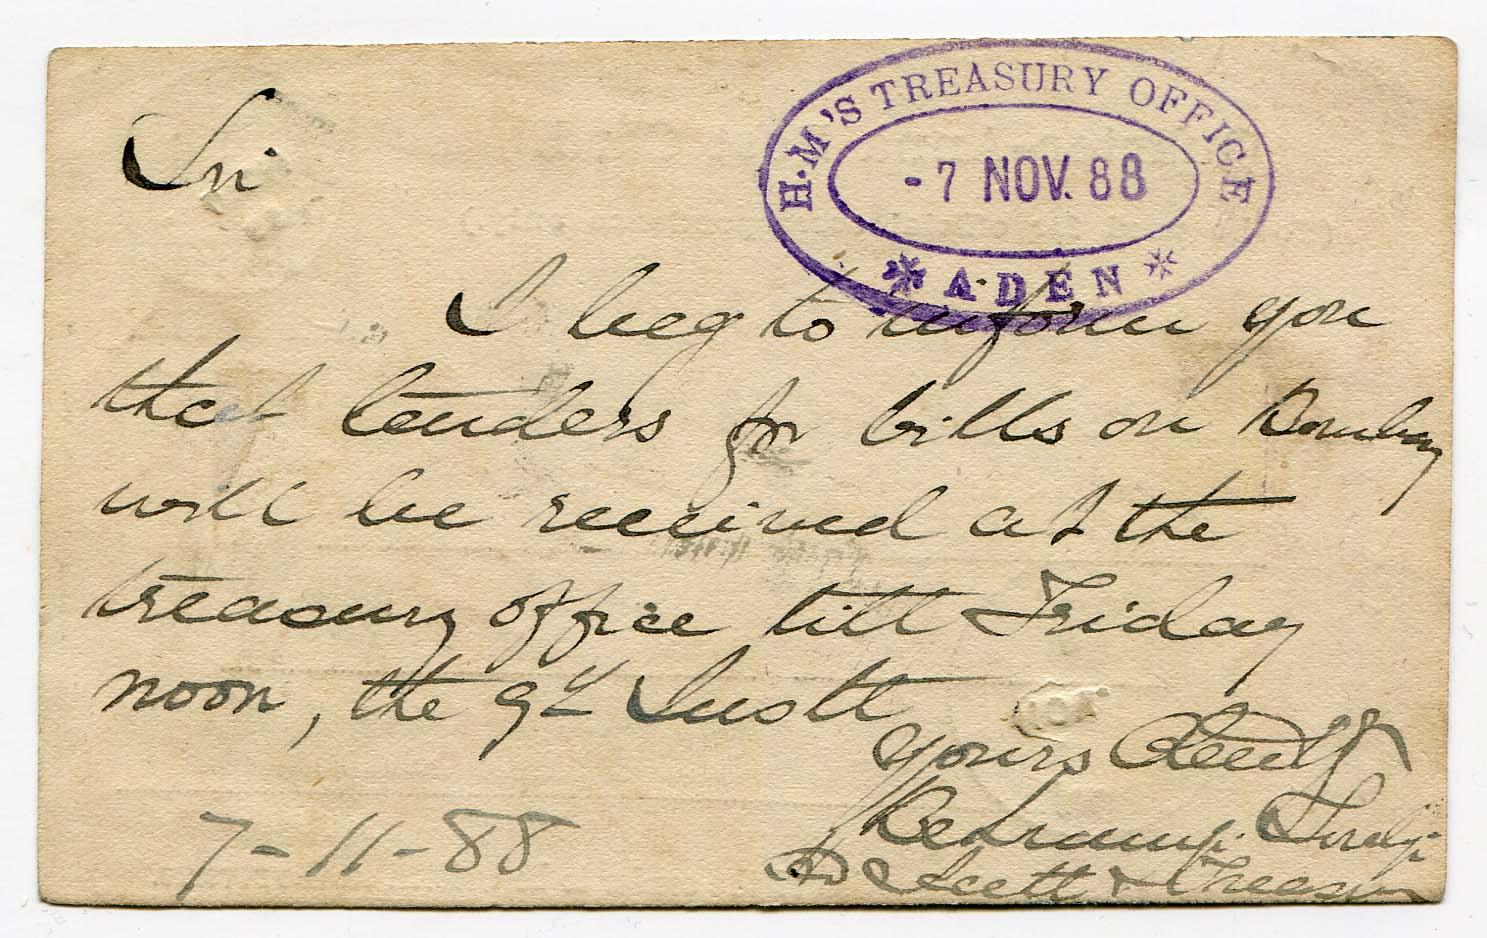 H.M'S TREASURY OFFICE
- 7 NOV. 88
* ADEN *
Sir
I beg to inform you
that tenders for bills on Bombay
will be received at the
treasury office till Friday
noon, the 9th Instt
yours
7-11-88